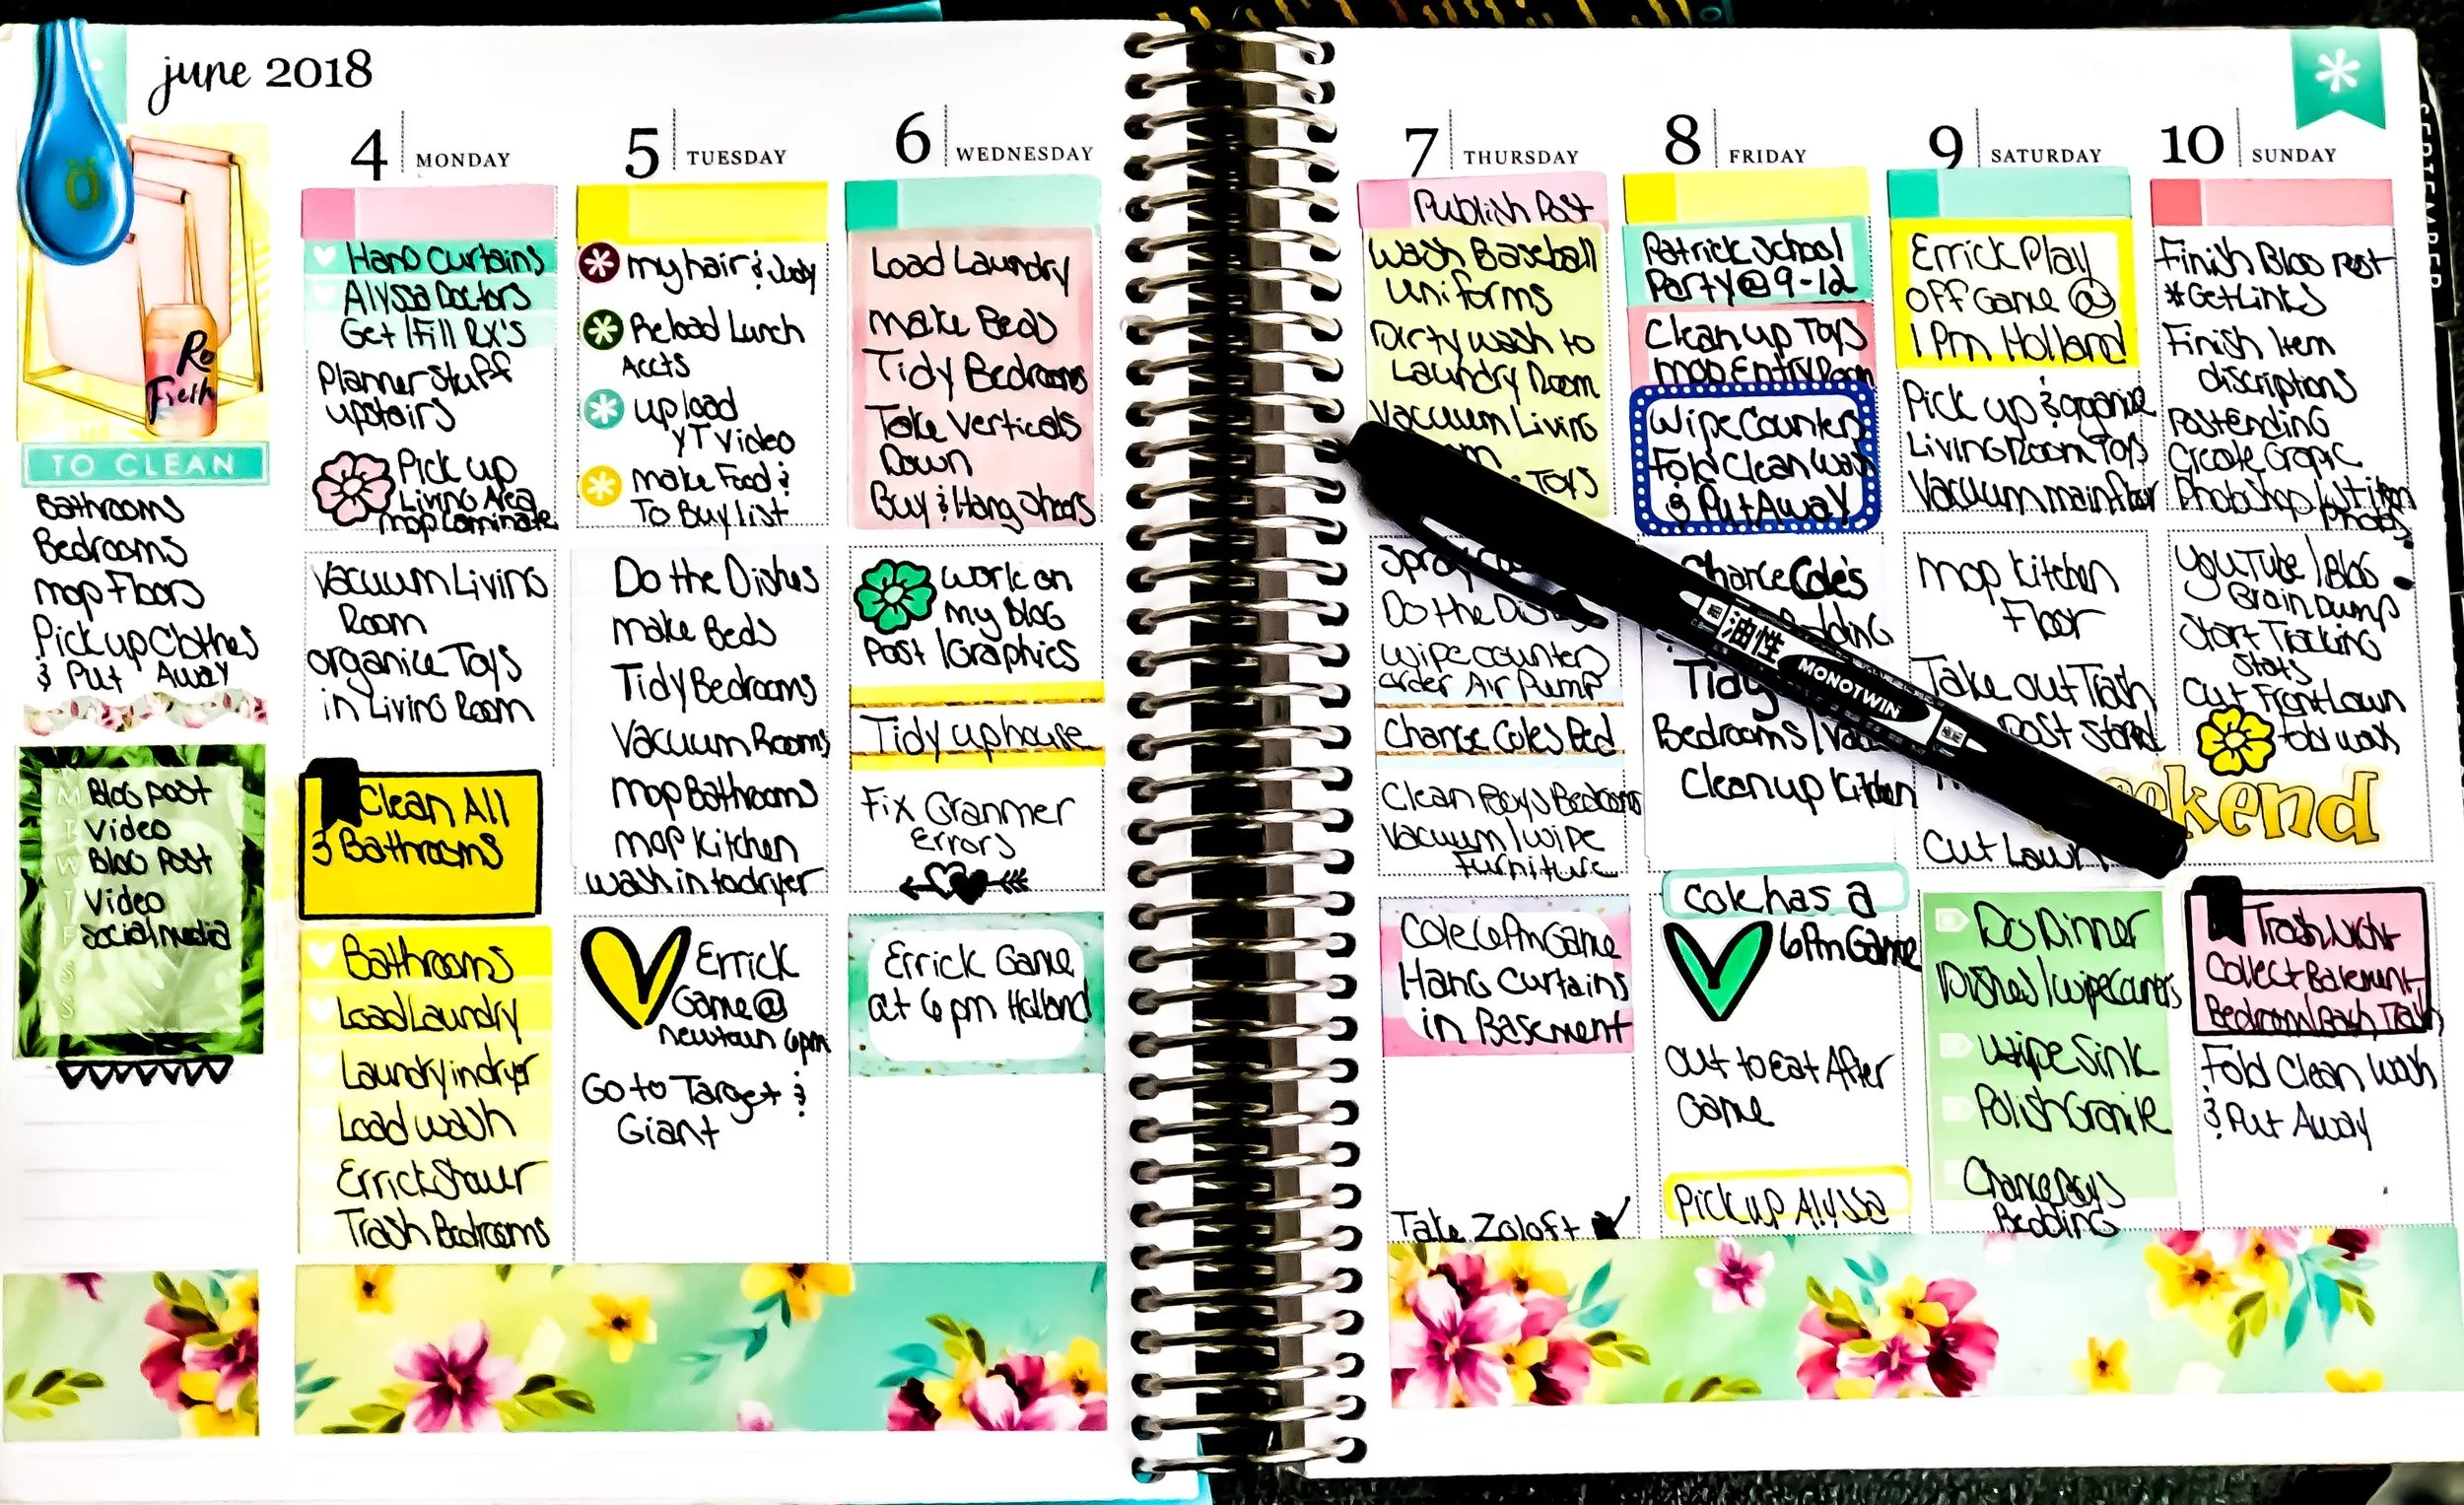 june 2018
Re
Fresh
TO CLEAN
Bathrooms
Bedrooms
mop Floors
Pick up Clothes
& Put Away
M Blog post
T Video
W Blog Post
T Video
F Social media
S
S
4 MONDAY
Hang Curtains
Alyssa Doctors
Get / Fill RX's
Planner Stuff
upstairs
Pick up
Living Area
mop Laminate
Vacuum Living
Room
organize Toys
in Living Room
Clean All
3 Bathrooms
Bathrooms
Load Laundry
Laundry in dryer
Load wash
Errick Shower
Trash Bedrooms
5 TUESDAY
my hair & Judy
Reload Lunch
Accts
upload
YT video
make Food &
To Buy list
Do the Dishes
make Beds
Tidy Bedrooms
Vacuum Rooms
mop Bathrooms
mop Kitchen
wash in to dryer
Errick
Game @
newtown 6pm
Go to Target &
Giant
6 WEDNESDAY
Load Laundry
make Beds
Tidy Bedrooms
Take Verticals
Down
Buy & Hang sheers
work on
my blog
Post / Graphics
Tidy up house
Fix Grammer
Errors
Errick Game
at 6pm Holland
7 THURSDAY
Publish Post
Wash Baseball
Uniforms
Dirty wash to
Laundry Room
Vacuum Living
Toys
Spray
Do the
wipe counters
order Air Pump
Change Coles Bed
Clean Boys Bedrooms
Vacuum / wipe
Furniture
Cole 6pm Game
Hang Curtains
in Basement
Take Zoloft
8 FRIDAY
Patrick School
Party @ 9-12
Clean up Toys
mop Entry Room
Wipe Counters
Fold Clean Wash
& Put Away
Change Cole's
Bedding
Tidy
Bedrooms /
Clean up Kitchen
Cole has a
6pm Game
out to Eat After
Game
Pick up Alyssa
油性
MONOTWIN
9 SATURDAY
Errick Play
off Game @
1pm Holland
Pick up & organize
Living Room Toys
Vacuum main floor
mop Kitchen
Floor
Take out Trash
Cut Lawn
Do Dinner
Dishes / wipe Counters
Wipe Sink
Polish Granite
Change Boys
Bedding
10 SUNDAY
Finish Blog Post
*Get Links
Finish Item
discriptions
Post Ending
Create Grapic
Photoshop
Photos
YouTube / Blog
Brain Dump
Start Tracking
Stats
Cut Front Lawn
Fold wash
ekend
Trash Night
Collect Basement
Bedroom / Bath Trash
Fold Clean Wash
& Put Away
SEPTEMBER